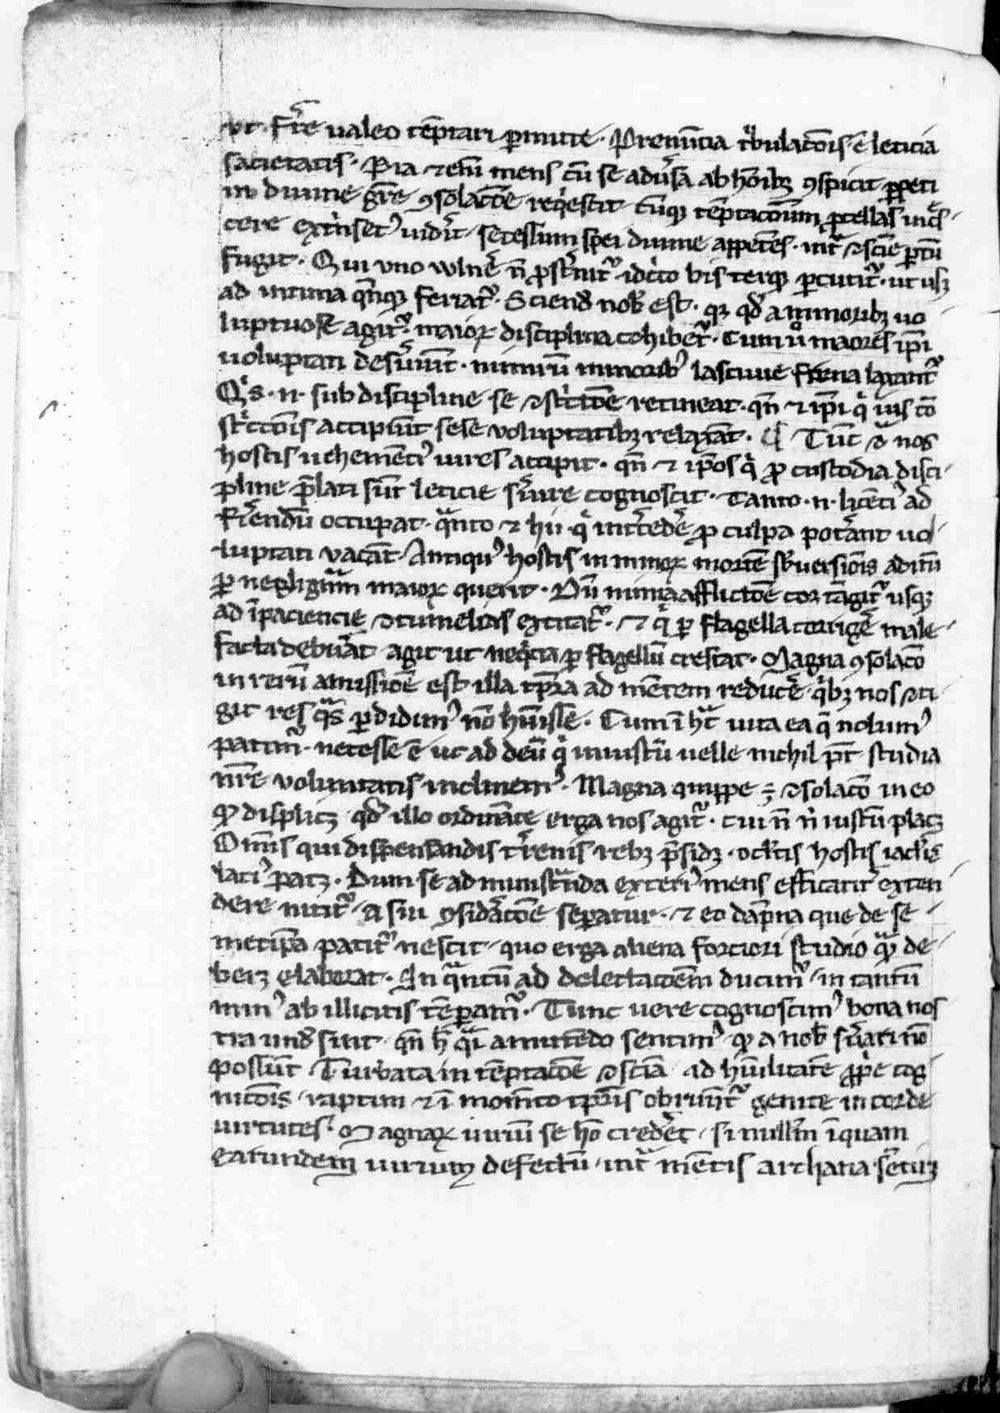 ut ferre ualeo temptari permitte. Prenuncia tribulacionis est leticia
sacietatis. Pia etenim mens cum se aduersa ab hominibus conspicit perpeti
in diuine gratie consolacione requiescit cumque temptacionum procellas incres
cere extrinsecus uiderit secessum spei diuine appetens intra conscientie portum
fugit. Qui uno uulnere non prosternitur idcirco bis terque percutitur ut usque
ad intima quandoque feriatur. Sciendum nobis est quia quod a minoribus uo
luptuose agitur maiorum disciplina cohibetur. Cum uero maiores ipsi
uoluptati deseruiunt nimirum minoribus lasciuie frena laxantur
Quis enim sub discipline se constrictione retineat quando et ipsi qui ius con
strictionis accipiunt sese uoluptatibus relaxant. Tunc contra nos
hostis uehementius uires accipit quando et ipsos qui pro custodia disci
pline prelati sunt leticie seruire cognoscit. Tanto enim licentius ad
feriendum occupat quanto et hii qui intercedere pro culpa poterant uo
luptati uacant. Antiquus hostis in minorum mortem subuersionis aditum
per negligentiam maiorum querit. Dum nimia afflictione cor tangitur usque
ad impaciencie contumelias excitatur et qui per flagella corrigere male
facta debuerant agit ut nequitia per flagellum crescat. Magna consolacio
in rerum amissione est illa tempora ad mentem reducere quibus nos conti
git res quas perdidimus non habuisse. Cum in hac uita ea que nolumus
patimur necesse est ut ad deum qui iniustum uelle nichil potest studia
nostre voluntatis inclinemus. Magna quippe est consolacio in eo
quod displicet quod illo ordinante erga nos agitur cui non nisi iustum placet
Omnis qui dispensandis terrenis rebus presidet occultis hostis iaculis
lacius patet. Dum se ad ministranda exterius mens efficaciter exten
dere nititur a sui consideracione separatur et eo dampna que de se
metipsa patitur nescit quo erga aliena forciori studio quam de
bet elaborat. In quantum ad delectacionem ducimur in tantum
minus ab illicitis temperamur. Tunc uere cognoscimus bona nos
tra unde sint quando hec quasi amittendo sentimus quod a nobis seruari non
possunt Turbata in temptacione conscientia ad humilitatem proprie cog
nicionis raptim et in momento temporis obruuntur genite in corde
uirtutes. Magnarum uirium se homo crederet si nullum unquam
earundem uirium defectum intra mentis archana sentiret